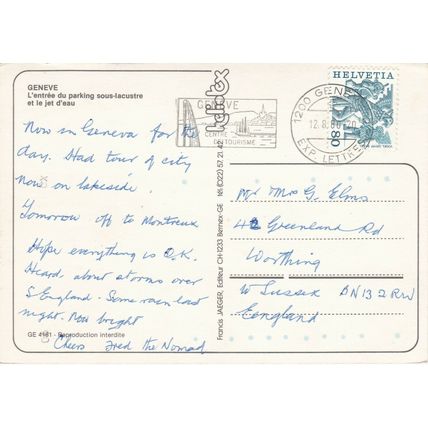 GENEVE
L'entrée du parking sous-lacustre
et le jet d'eau
Now in Geneva for the
day. Had tour of city
now on lakeside.
Tomorrow off to Montreux
Hope everything is O.K.
Heard about storms over
S England. Some rain last
night. Now bright
Cheers Fred the Nomad
GE 4161 - Reproduction interdite
Francis JAEGER, Editeur CH-1233 Bernex-GE Tél. (022) 57.21.42
GENEVE
CENTRE
DE TOURISME
1200 GENEVE
12.8.86-20
EXP. LETTRES
HELVETIA
80
Mr Mrs G. Elms
42 Greenland Rd
Worthing
W Sussex BN13 2RW
England